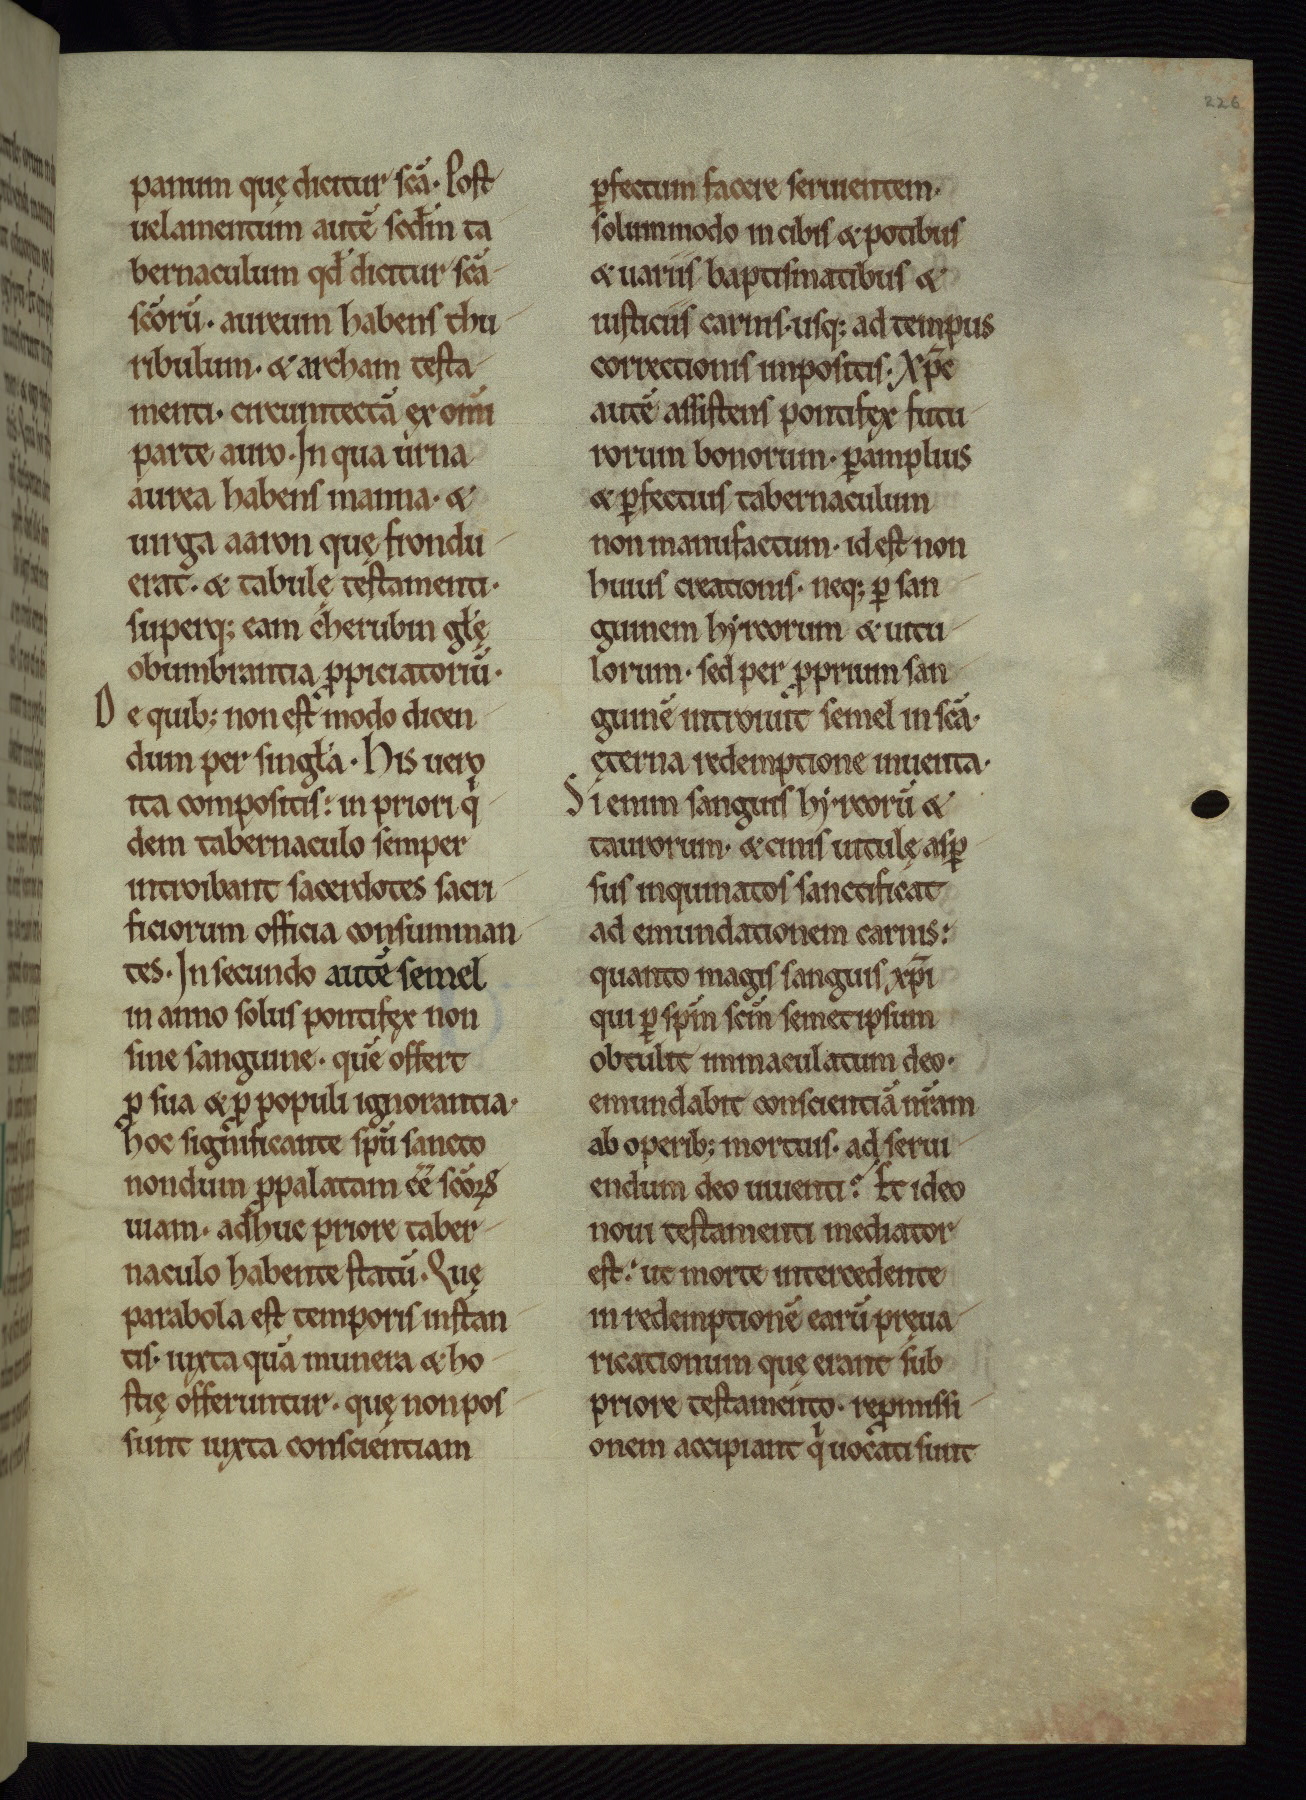 226
panum quę dicitur scā. Post
uelamentum autē scd̄m ta
bernaculum qđ dicitur scā
scōrū. aureum habens thu
ribulum. & archam testa
menti. circumtectā ex omī
parte auro. In qua urna
aurea habens manna. &
uirga aaron quę frondu
erat. & tabulę testamenti.
superq; eam cherubin glę̄
obumbrantia ꝓpiciatoriū.
De quib; non est modo dicen
dum per singła. His uero
ita compositis: in priori qͥ
dem tabernaculo semper
introibant sacerdotes sacri
ficiorum officia consumman
tes. In secundo autē semel
in anno solus pontifex non
sine sanguine. quē offert
ꝓ sua & ꝓ populi ignorantia.
hoc significante spū sancto
nondum ꝓpalatam eē̄ scōꝝ
uiam. adhuc priore taber
naculo habente statū. Quę
parabola est temporis instan
tis. iuxta quā munera & ho
stię offeruntur. quę non pos
sunt iuxta conscientiam
ꝑfectum facere seruientem.
solummodo in cibis & potibus
& uariis baptismatibus &
iusticiis carnis. usq; ad tempus
correctionis impositis. Xp̄c
autē assistens pontifex futu
rorum bonorum. ꝑ amplius
& ꝑfectius tabernaculum
non manufactum. id est non
huius creationis. neq; ꝑ san
guinem hyrcorum & uitu
lorum. sed per ꝓprium san
guinē introiuit semel in scā.
ęterna redemptione inuenta.
Si enim sanguis hyrcorū &
taurorum. & cinis uitulę asꝑ
sus inquinatos sanctificat
ad emundationem carnis:
quanto magis sanguis xp̄i
qui ꝑ sp̄m scm̄ semetipsum
obtulit immaculatum deo.
emundabit conscientiā nr̄am
ab operib; mortuis. ad serui
endum deo uiuenti? Et ideo
noui testamenti mediator
est: ut morte intercedente
in redemptionē earū pręua
ricationum quę erant sub
priore testamento. reꝓmissi
onem accipiant qͥ uocati sunt